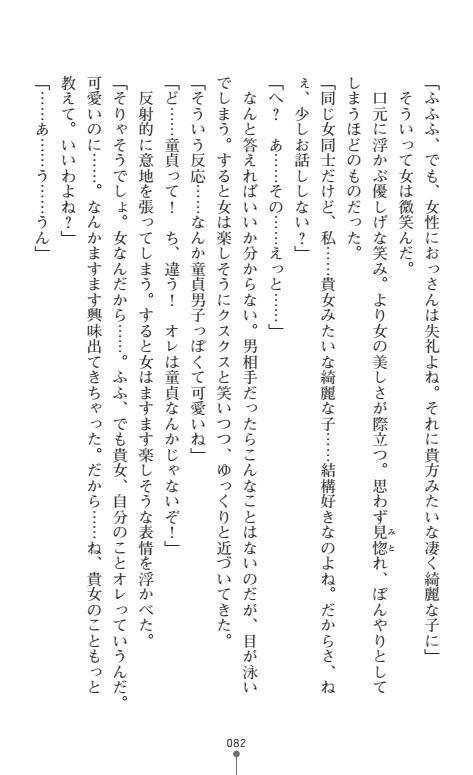 「ふふふ、でも、女性におっさんは失礼よね。それに貴方みたいな凄く綺麗な子に」
そういって女は微笑んだ。
口元に浮かぶ優しげな笑み。より女の美しさが際立つ。思わず見惚れ、ぼんやりとして
みと
しまうほどのものだった。
「同じ女同士だけど、私……貴女みたいな綺麗な子……結構好きなのよね。だからさ、ね
ぇ、少しお話ししない?」
「へ? あ……その……えっと……」
なんと答えればいいか分からない。男相手だったらこんなことはないのだが、目が泳い
でしまう。すると女は楽しそうにクスクスと笑いつつ、ゆっくりと近づいてきた。
「そういう反応……なんか童貞男子っぽくて可愛いね」
「ど……童貞って! ち、違う! オレは童貞なんかじゃないぞ!」
反射的に意地を張ってしまう。すると女はますます楽しそうな表情を浮かべた。
「そりゃそうでしょ。女なんだから……。ふふ、でも貴女、自分のことオレっていうんだ。
可愛いのに……。なんかますます興味出てきちゃった。だから……ね、貴女のこともっと
教えて。いいわよね?」
「……あ……う……うん」
082